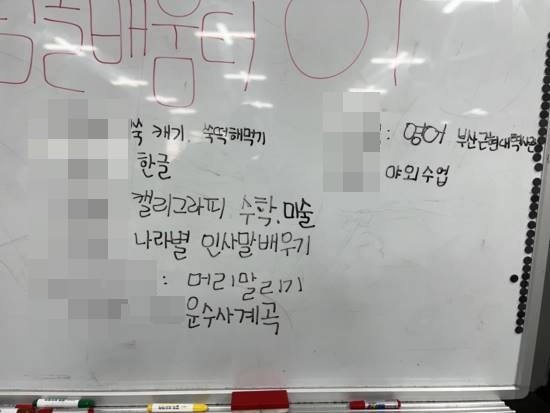 배움터
쑥 캐기, 쑥떡해먹기
한글
캘리그라피 수학, 미술
나라별 인사말배우기
: 머리말리기
운수사계곡
: 영어 부산근현대역사관
야외수업